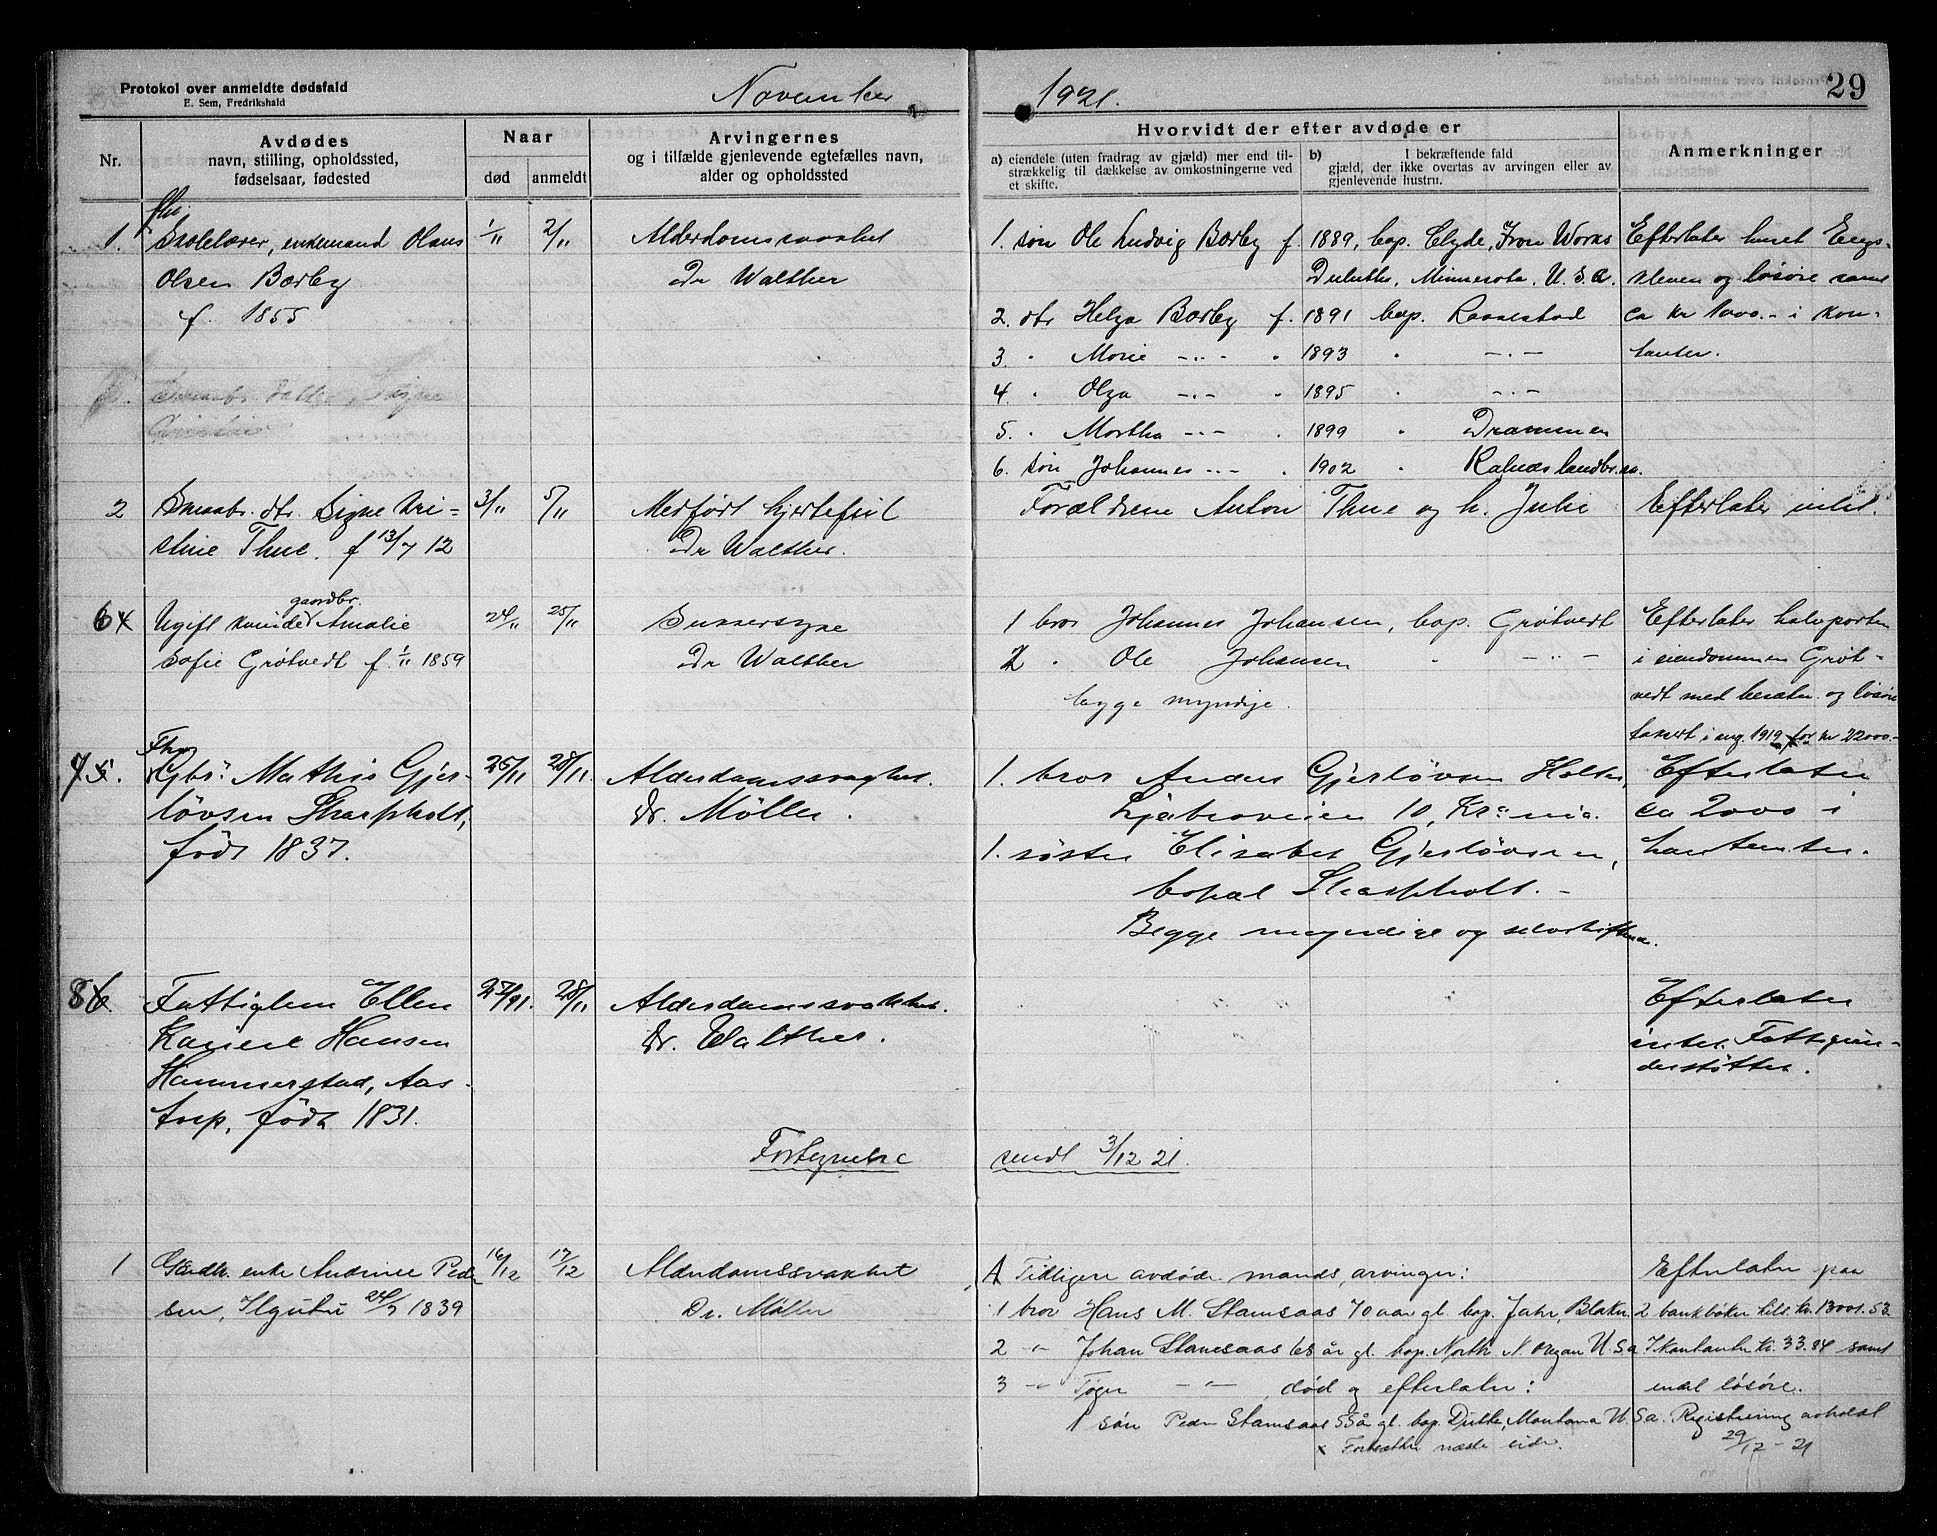 Protokol over anmeldte dødsfald
E. Sem, Fredrikshald
November
1921.
29
Nr.
Avdødes
navn, stilling, opholdssted,
fødselsaar, fødested
Naar
død
anmeldt
Arvingernes
og i tilfælde gjenlevende egtefælles navn,
alder og opholdssted
Hvorvidt der efter avdøde er
a) eiendele (uten fradrag av gjæld) mer end til-
strækkelig til dækkelse av omkostningerne ved
et skifte.
b) I bekræftende fald
gjæld, der ikke overtas av arvingen eller av
gjenlevende hustru.
Anmerkninger
fhv.
1. Skolelærer, enkemand Olaus
Olsen Bærby
f. 1855
1/11
2/11
Alderdomssvakhet
Dr Walther
1. søn Ole Ludvig Bærby f. 1889, bop. Clyde, Iron Works
Duluth, Minnesota. U.S.A.
2. dtr Helga Bærby f. 1891 bop. Raaelstad
3 " Marie -"- " 1893 " -"-
4. " Olga -"- " 1895 " -"-
5. " Martha -"- " 1899 " Drammen
6. søn Johannes -"- " 1902 " Kalnes landbr.sk.
Efterlater huset Engs-
kleven og løsøre samt
ca kr 1000.- i kon-
tanter.
2 Smaabr. dtr. Signe Kri-
stine Thue. f 13/7 12
3/11
5/11
Medført hjertefeil
Dr Walther.
Forældrene Anton Thue og h. Julie
Efterlater intet.
6 4 Ugift kvinde gaardbr. Amalie
Sofie Grøtvedt f. 1/11 1859
24/11
25/11
Sukkersyke
Dr Walther
1 bror Johannes Johansen, bop. Grøtvedt
2 " Ole Johansen " -"-
begge myndige.
Efterlater halvparten
i eiendommen Grøt-
vedt med besætn. og løsøre
taxert i aug. 1919 for kr 22000.-
7 5. Fhv
Gbr. Mathis Gjer-
løvsen Skarpholt,
født 1837.
25/11
28/11.
Alderdomssvaghet.
Dr. Møller.
1. bror Anders Gjerløvsen Holter,
Ljabroveien 10, Kr.a nia.
1. søster Elisabet Gjerløvsen,
bopæl Skarpholt. -
Begge myndige og selvskiftende.
Efterlater
ca 2000 i
kontanter.
8 6 Fattiglem Ellen
Karine Hansen
Hammerstad, Aas-
torp, født 1831.
28/11
Alderdomssvakhet.
Dr. Walther.
Efterlater
intet. Fattigun-
derstøttet.
Fortegnelse
sendt 3/12 21.
1 Gårdbr. enke Andrine Peder
sen, 24/7 1839
16/12
17/12
Alderdomssvakhet
Dr. Møller
A Tidligere avdøde mands arvinger:
1 bror Hans M. Stamsaas 70 aar gl. bop. Jahr, Blaker.
2 -"- Johan Stamsaas 68 år gl. bop. North U.S.A
3 -"- Tøger -"- død og efterlater:
1 søn Peder Stamsaas 55 år gl. bop. Butte, Montana U.S.A.
x Fortsætter næste side.
Efterlater paa
2 bankbøker tils. kr. 13001.53
I kontanter kr. 33.84 samt
endel løsøre.
Registrering avholdt
29/12 - 21